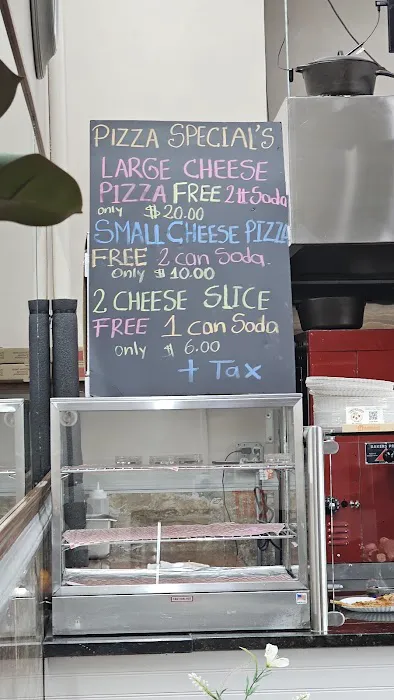 PIZZA SPECIAL'S
LARGE CHEESE
PIZZA FREE 2lt Soda
only $20.00
SMALL CHEESE PIZZA
FREE 2 can Soda.
Only $10.00
2 CHEESE SLICE
FREE 1 can Soda
only $ 6.00
+ Tax